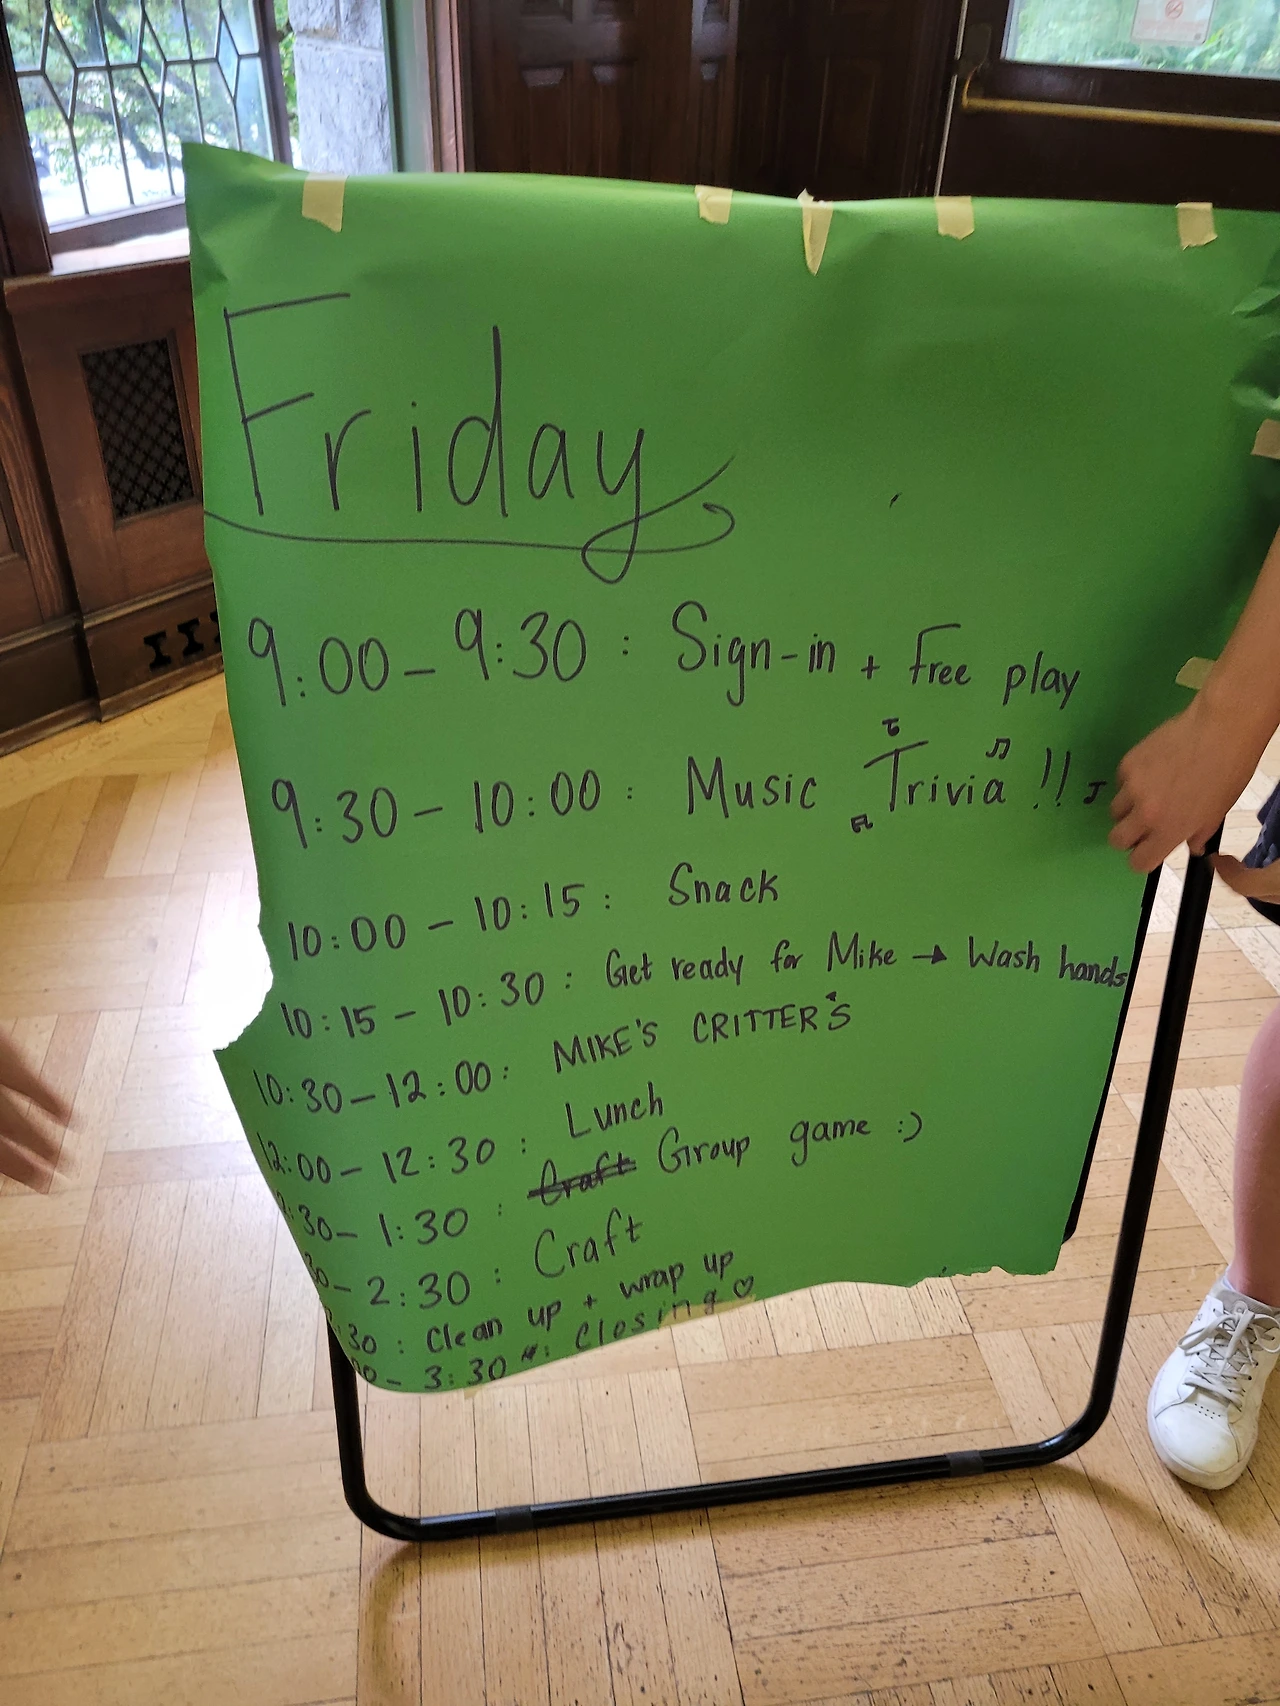 Friday
9:00 - 9:30 : Sign-in + Free play
9:30 - 10:00 : Music Trivia !!
10:00 - 10:15 : Snack
10:15 - 10:30 : Get ready for Mike → Wash hands
10:30 - 12:00 : MIKE'S CRITTER'S
12:00 - 12:30 : Lunch
:30 - 1:30 : Craft Group game :)
30 - 2:30 : Craft
:30 : Clean up + wrap up
00 - 3:30 : Closing ♡